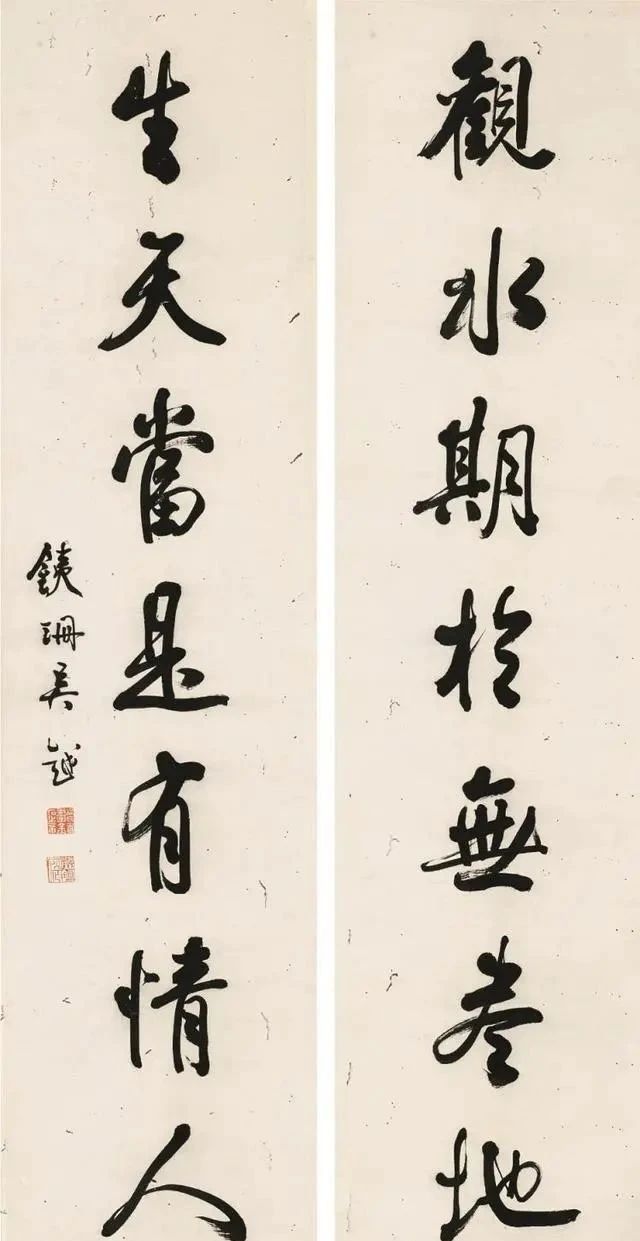 觀水期於無盡地
生天當是有情人
銕珊吳